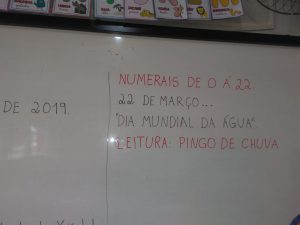 NUMERAIS DE 0 Á 22.
22 DE MARÇO...
DE 2019.
"DIA MUNDIAL DA ÁGUA".
LEITURA: PINGO DE CHUVA.